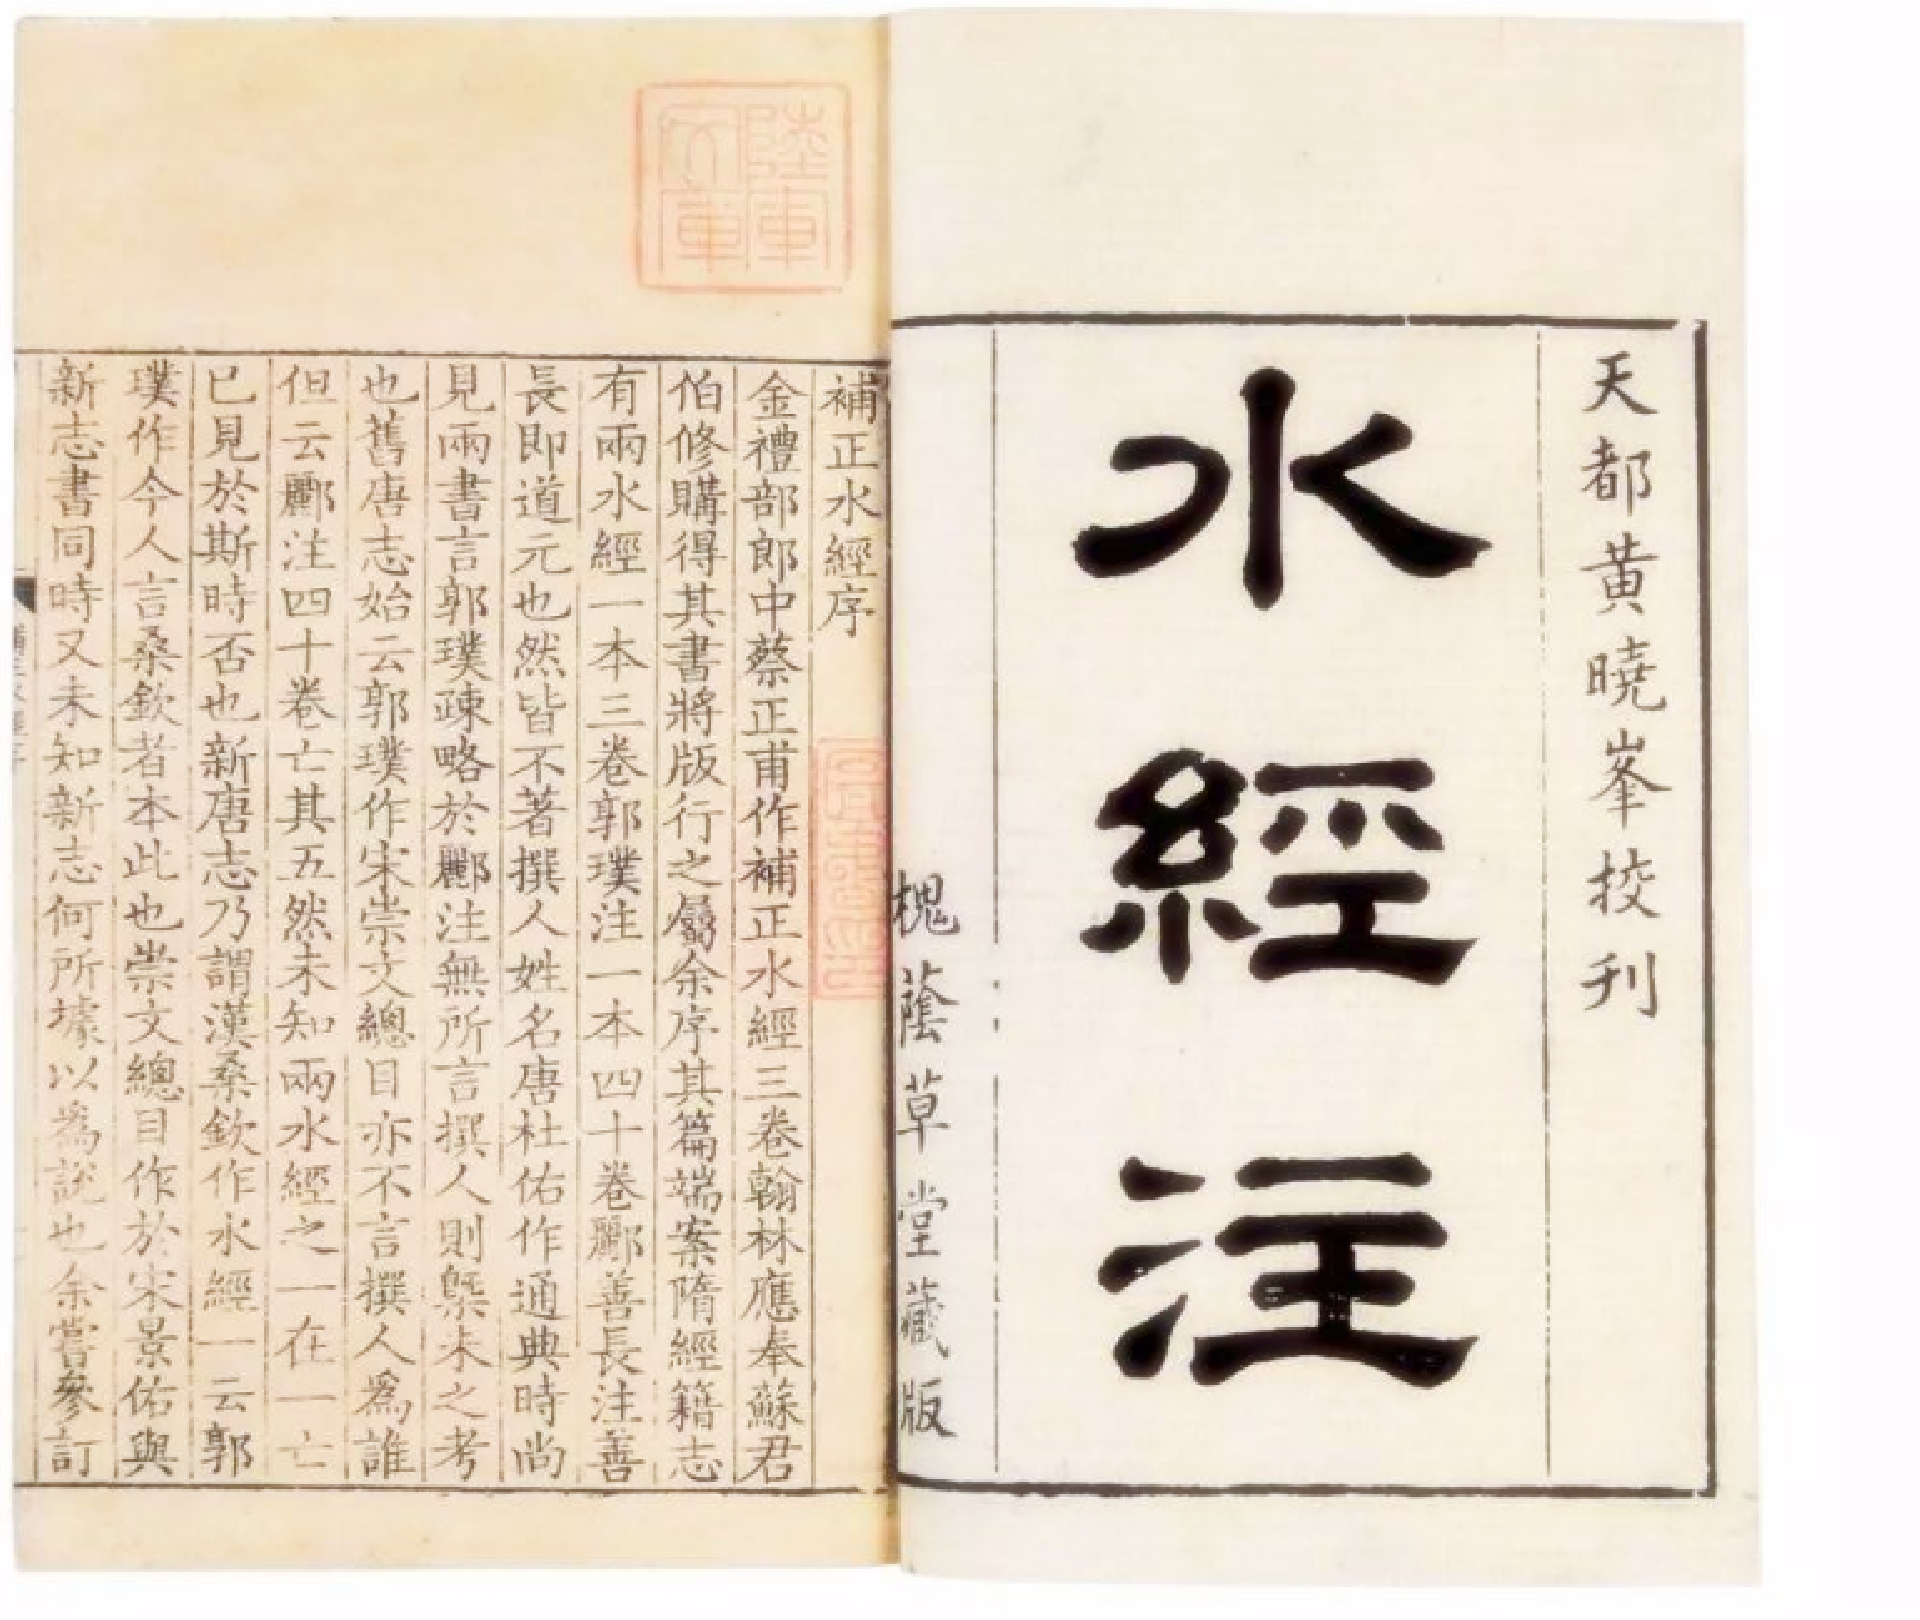 天都黄曉峯校刋
水經注
槐蔭草堂藏版
陸軍文庫
補正水經序
金禮部郎中蔡正甫作補正水經三卷翰林應奉蘇君
伯修購得其書將版行之屬余序其篇端案隋經籍志
有兩水經一本三卷郭璞注一本四十卷酈善長注善
長即道元也然皆不著撰人姓名唐杜佑作通典時尚
見兩書言郭璞疎略於酈注無所言撰人則槩未之考
也舊唐志始云郭璞作宋崇文總目亦不言撰人爲誰
但云酈注四十卷亡其五然未知兩水經之一在一亡
已見於斯時否也新唐志乃謂漢桑欽作水經一云郭
璞作今人言桑欽者本此也崇文總目作於宋景佑與
新志書同時又未知新志何所據以爲説也余嘗參訂